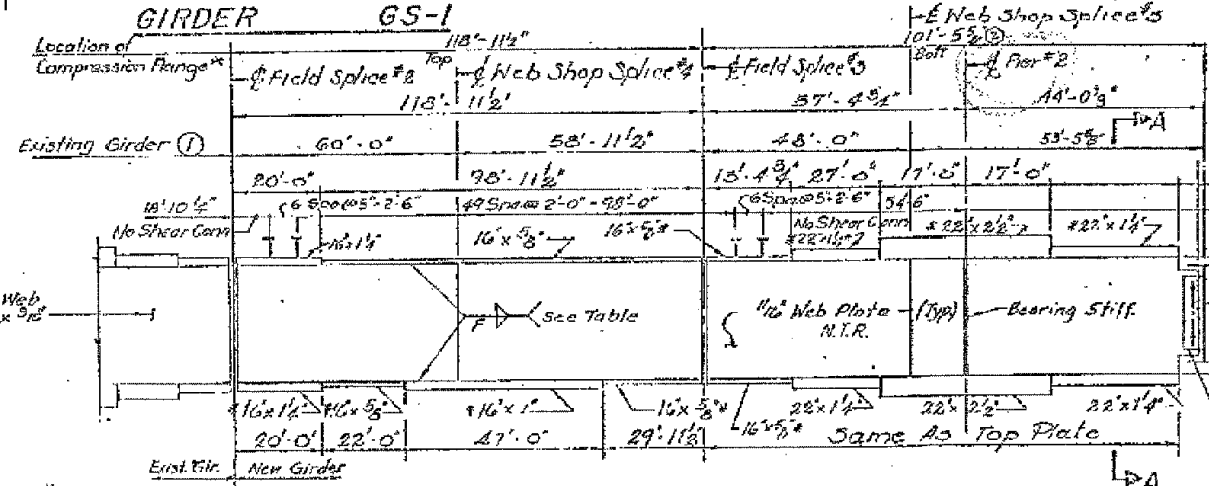 GIRDER GS-1
Location of
Compression Flange*
118'-11½"
Top
℄ Web Shop Splice #5
101'-5⅝" ②
Bott
℄ Field Splice #2
℄ Web Shop Splice #4
℄ Field Splice #3
℄ Pier #2
118'-11½"
57'-4¾"
44'-0⅞"
Existing Girder ①
60'-0"
58'-11½"
48'-0"
53'-5⅝"
A
20'-0"
98'-11½"
13'-4¾"
27'-0"
17'-0"
17'-0"
18'-10½"
6 Spa@5"=2'-6"
49 Spa@ 2'-0"=98'-0"
6 Spa@5"=2'-6"
54'-6"
No Shear Conn
16"x1¼"
16"x⅝"
16"x⅝"*
No Shear Conn
*22"x1¼"
*22"x2½"
*22"x1¼"
Web
x 9/16"
F
See Table
11/16" Web Plate
N.T.R.
(Typ)
Bearing Stiff.
*16"x1¼"
*16"x⅝"
*16"x1"
16"x⅝"*
16"x⅝"*
22"x1¼"
22"x2½"
22"x1¼"
20'-0"
22'-0"
47'-0"
29'-11½"
Same As Top Plate
Exist. Gir.
New Girder
A